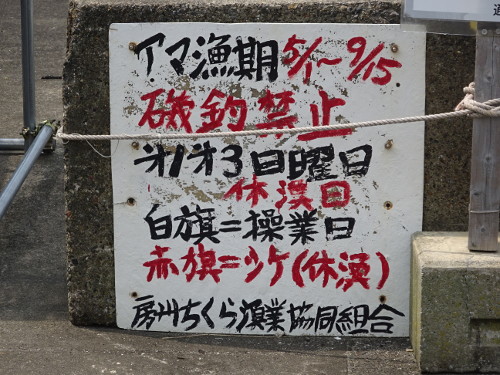 アマ漁期5/1~9/15
磯釣禁止
才1才3日曜日
休漁日
白旗=操業日
赤旗=シケ(休漁)
房州ちくら漁業協同組合